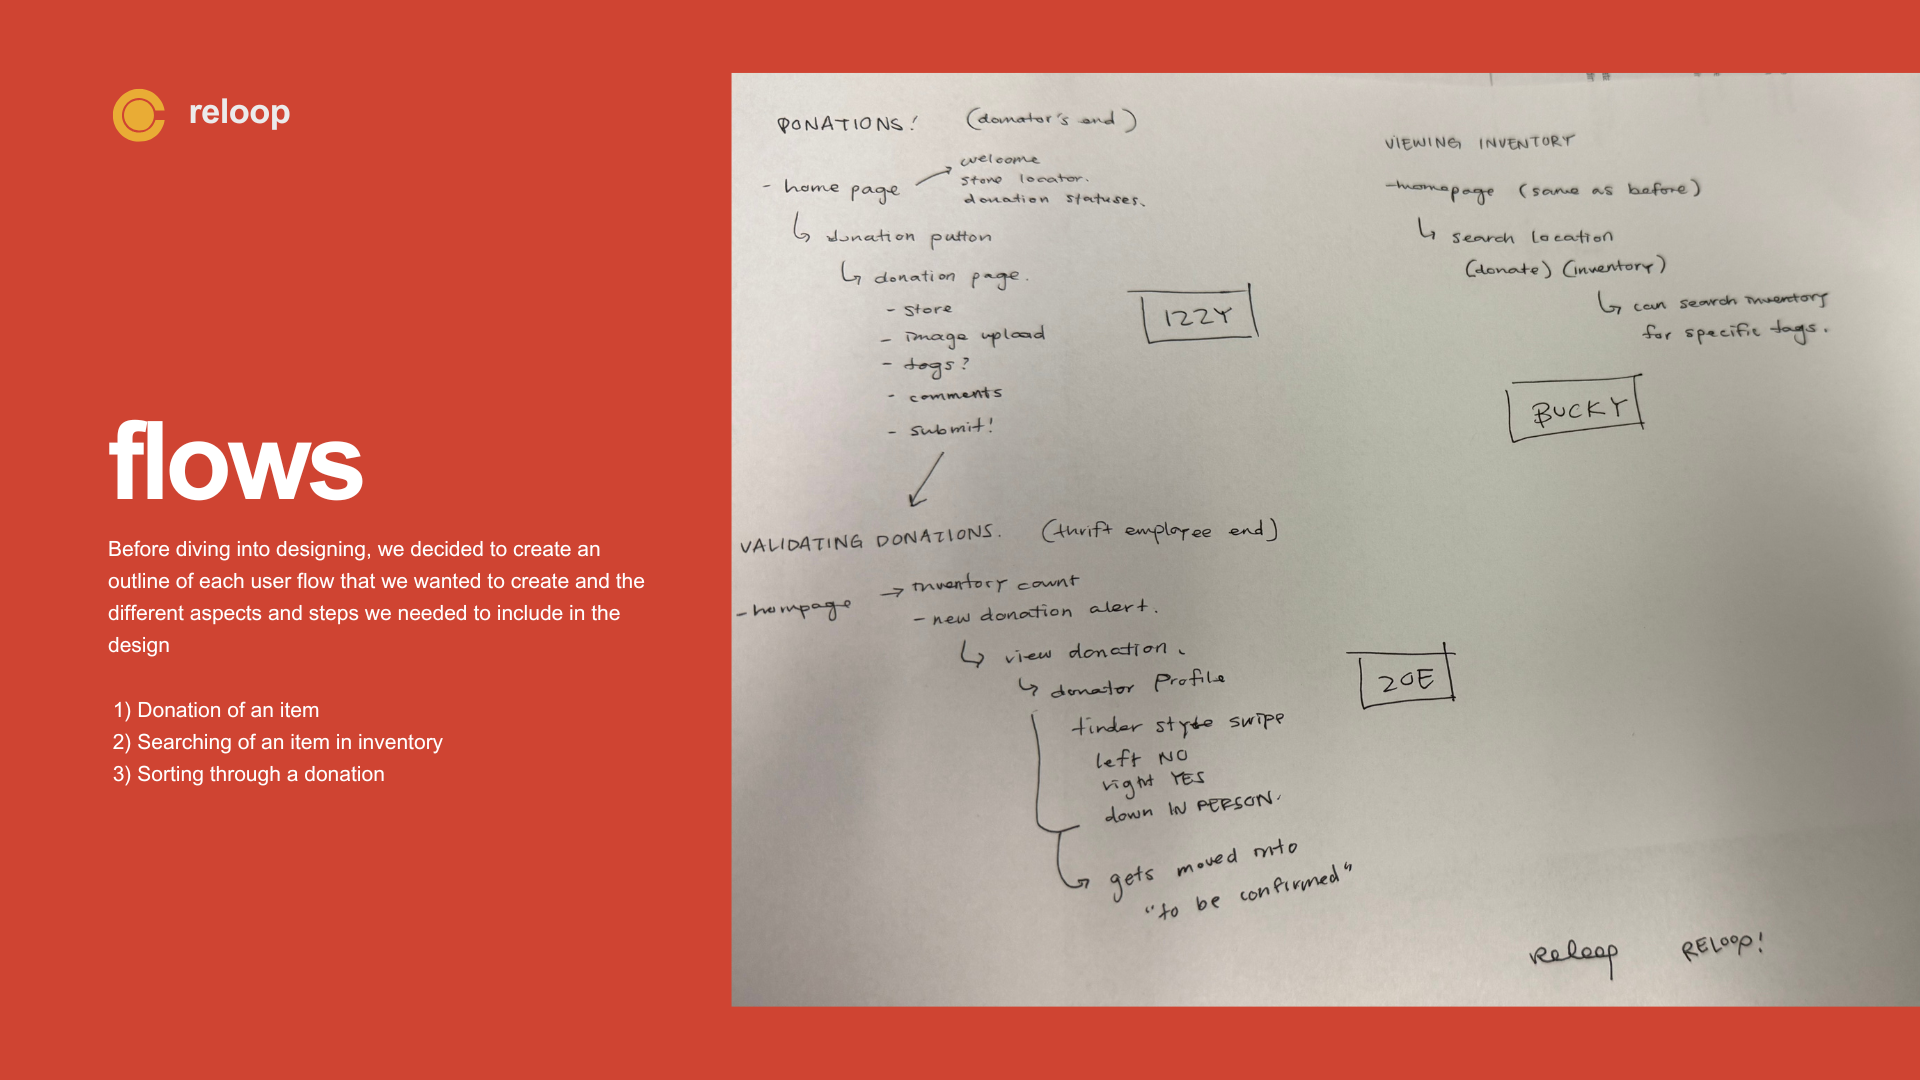 reloop
flows
Before diving into designing, we decided to create an
outline of each user flow that we wanted to create and the
different aspects and steps we needed to include in the
design
1) Donation of an item
2) Searching of an item in inventory
3) Sorting through a donation
DONATIONS! (donator's end)
- home page
welcome
store locator.
donation statuses.
donation button
donation page.
- store
- image upload
- tags?
- comments
- submit!
IZZY
VIEWING INVENTORY
- homepage (same as before)
search location
(donate) (inventory)
can search inventory
for specific tags.
BUCKY
VALIDATING DONATIONS. (thrift employee end)
- hompage → inventory count
- new donation alert.
view donation.
donator profile
tinder style swipe
left NO
right YES
down IN PERSON.
gets moved into
"to be confirmed"
ZOE
reloop RELOOP!